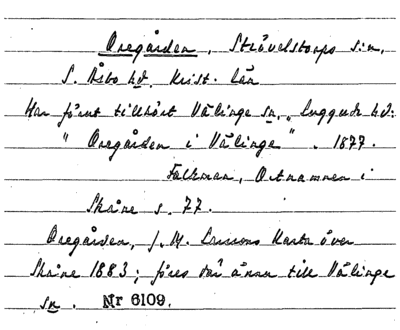 Oregården, Strövelstorps sn,
S. Åsbo hd. Krist. län
Har förut tillhört Välinge sn, Luggude hd:
"Oregården i Välinge". 1877.
Falkman, Ortnamnen i
Skåne s. 77.
Oregården, J. M. Larssons Karta över
Skåne 1883; föres där ännu till Välinge
sn. Nr 6109.